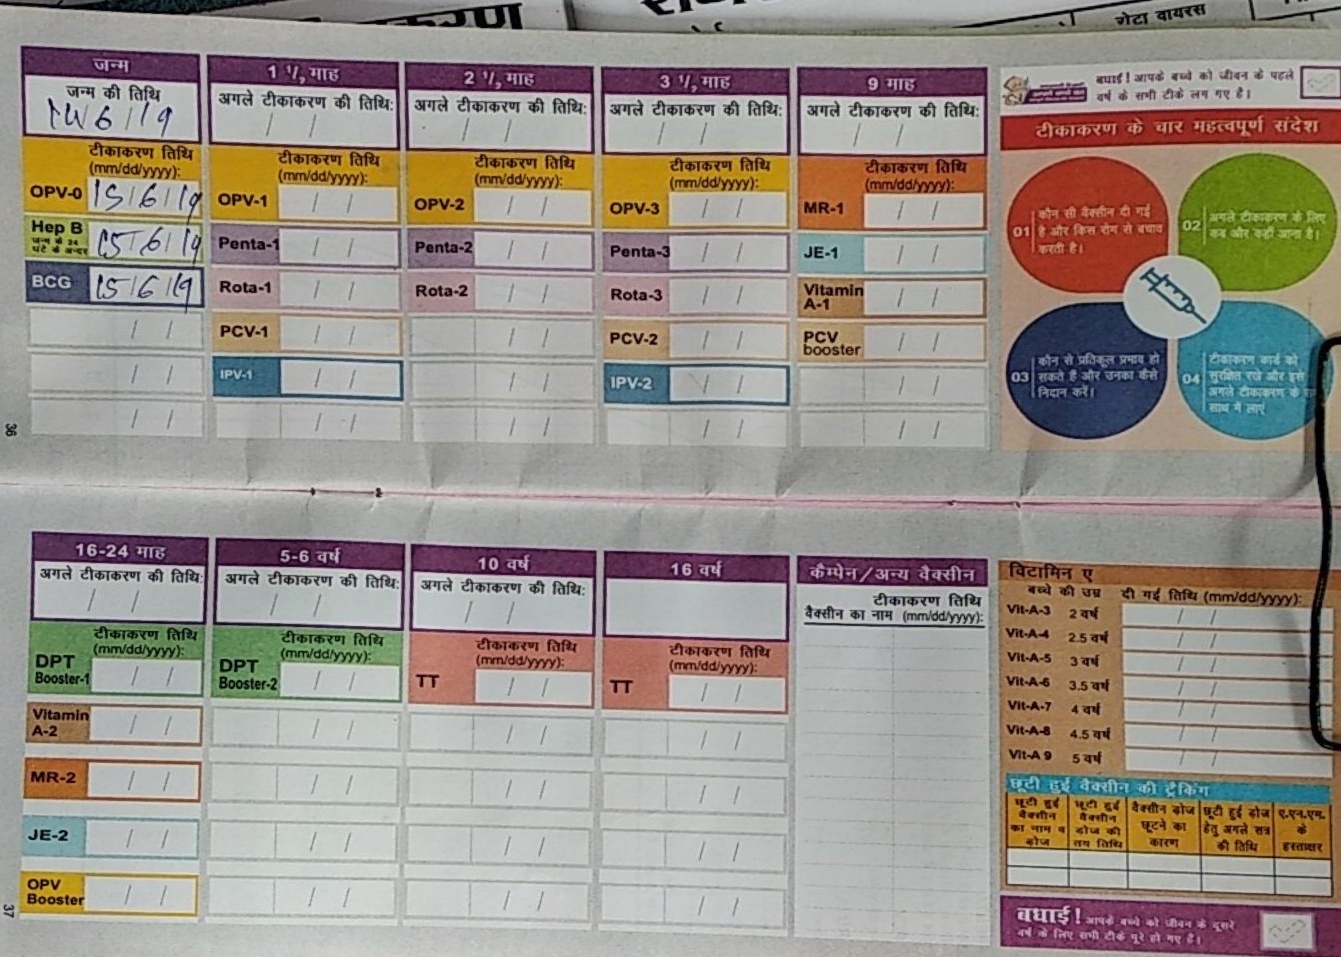 करण
रोटा वायरस
जन्म
जन्म की तिथि
टीकाकरण तिथि
(mm/dd/yyyy):
OPV-0 15/6/19
Hep B 15/6/19
जन्म के 24
घंटे के अन्दर
BCG 15/6/19
1 ½ माह
अगले टीकाकरण की तिथि:
/ /
टीकाकरण तिथि
(mm/dd/yyyy):
OPV-1 / /
Penta-1 / /
Rota-1 / /
PCV-1 / /
IPV-1 / /
2 ½ माह
अगले टीकाकरण की तिथि:
/ /
टीकाकरण तिथि
(mm/dd/yyyy):
OPV-2 / /
Penta-2 / /
Rota-2 / /
3 ½ माह
अगले टीकाकरण की तिथि:
/ /
टीकाकरण तिथि
(mm/dd/yyyy):
OPV-3 / /
Penta-3 / /
Rota-3 / /
PCV-2 / /
IPV-2 / /
9 माह
अगले टीकाकरण की तिथि:
/ /
टीकाकरण तिथि
(mm/dd/yyyy):
MR-1 / /
JE-1 / /
Vitamin
A-1 / /
PCV
booster / /
बधाई! आपके बच्चे को जीवन के पहले
वर्ष के सभी टीके लग गए है।
टीकाकरण के चार महत्वपूर्ण संदेश
01
कौन सी वैक्सीन दी गई
है और किस रोग से बचाव
करती है।
02
अगले टीकाकरण के लिए
कब और कहाँ आना है।
03
कौन से प्रतिकूल प्रभाव हो
सकते हैं और उनका कैसे
निदान करें।
04
टीकाकरण कार्ड को
सुरक्षित रखें और इसे
अगले टीकाकरण के
साथ में लाएं
36
16-24 माह
अगले टीकाकरण की तिथि:
/ /
टीकाकरण तिथि
(mm/dd/yyyy):
DPT
Booster-1 / /
Vitamin
A-2 / /
MR-2 / /
JE-2 / /
OPV
Booster / /
5-6 वर्ष
अगले टीकाकरण की तिथि:
/ /
टीकाकरण तिथि
(mm/dd/yyyy):
DPT
Booster-2 / /
10 वर्ष
अगले टीकाकरण की तिथि:
/ /
टीकाकरण तिथि
(mm/dd/yyyy):
TT / /
16 वर्ष
टीकाकरण तिथि
(mm/dd/yyyy):
TT / /
कैम्पेन/अन्य वैक्सीन
टीकाकरण तिथि
वैक्सीन का नाम (mm/dd/yyyy):
विटामिन ए
बच्चे की उम्र दी गई तिथि (mm/dd/yyyy):
Vit-A-3 2 वर्ष / /
Vit-A-4 2.5 वर्ष / /
Vit-A-5 3 वर्ष / /
Vit-A-6 3.5 वर्ष / /
Vit-A-7 4 वर्ष / /
Vit-A-8 4.5 वर्ष / /
Vit-A 9 5 वर्ष / /
छूटी हुई वैक्सीन की ट्रैकिंग
छूटी हुई
वैक्सीन
का नाम व
डोज
छूटी हुई
वैक्सीन
डोज की
तय तिथि
वैक्सीन डोज
छूटने का
कारण
छूटी हुई डोज
हेतु अगले सत्र
की तिथि
ए.एन.एम.
के
हस्ताक्षर
बधाई! आपके बच्चे को जीवन के दूसरे
वर्ष के लिए सभी टीके पूरे हो गए है।
37